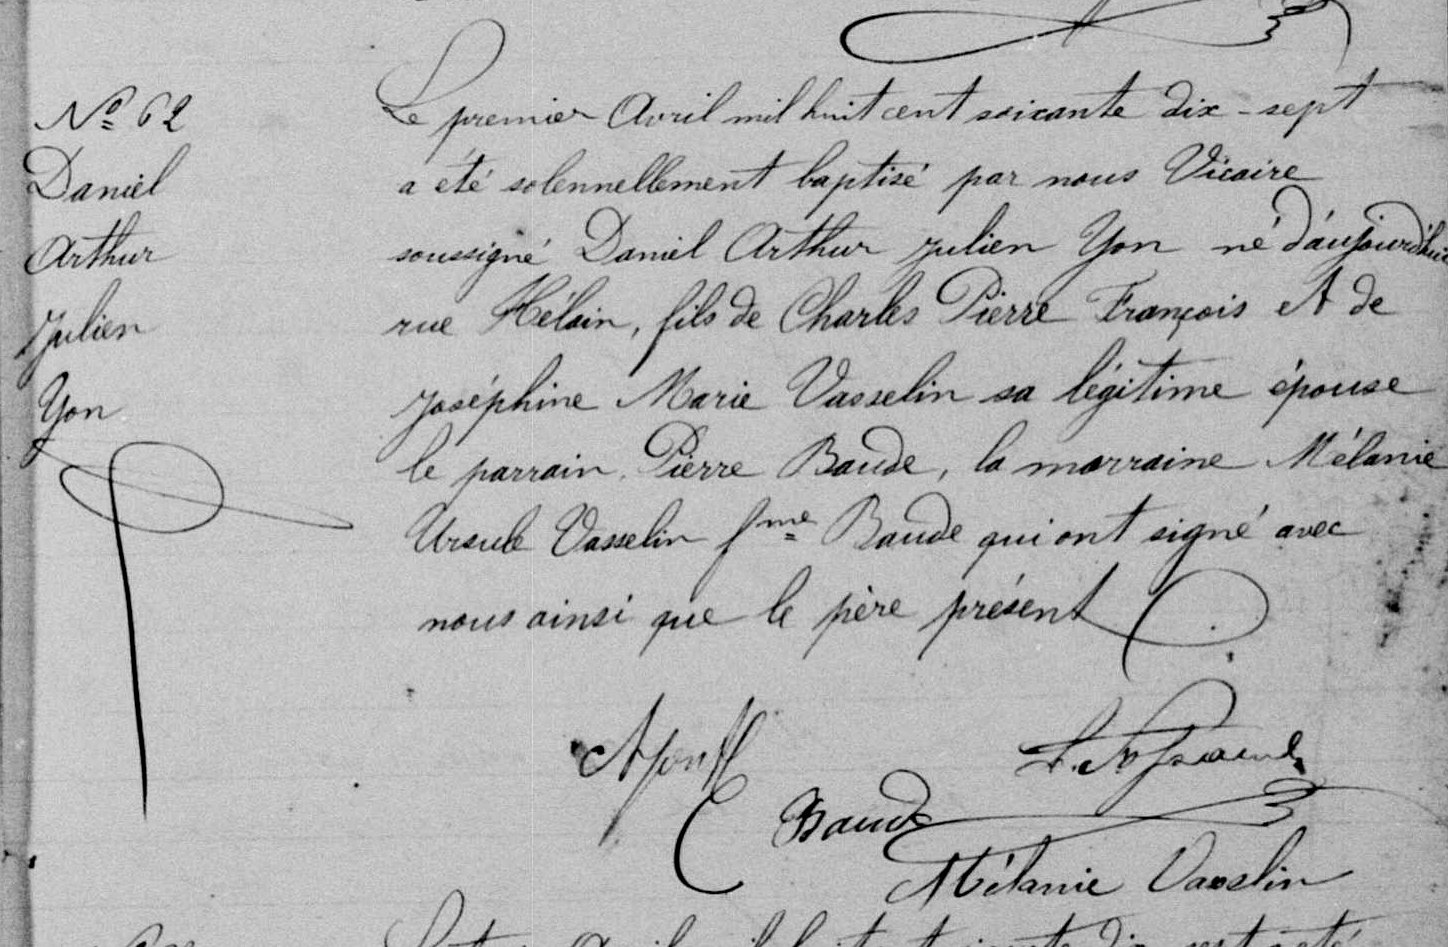 Nº 62
Daniel
Arthur
Julien
Yon
Le premier Avril mil huit cent soixante dix-sept
a été solennellement baptisé par nous Vicaire
soussigné Daniel Arthur Julien Yon né d'aujourd'hui
rue Hélain, fils de Charles Pierre François et de
Joséphine Marie Vasselin sa légitime épouse
le parrain Pierre Baude, la marraine Mélanie
Ursule Vasselin fme Baude qui ont signé avec
nous ainsi que le père présent
Baude
Mélanie Vasslin